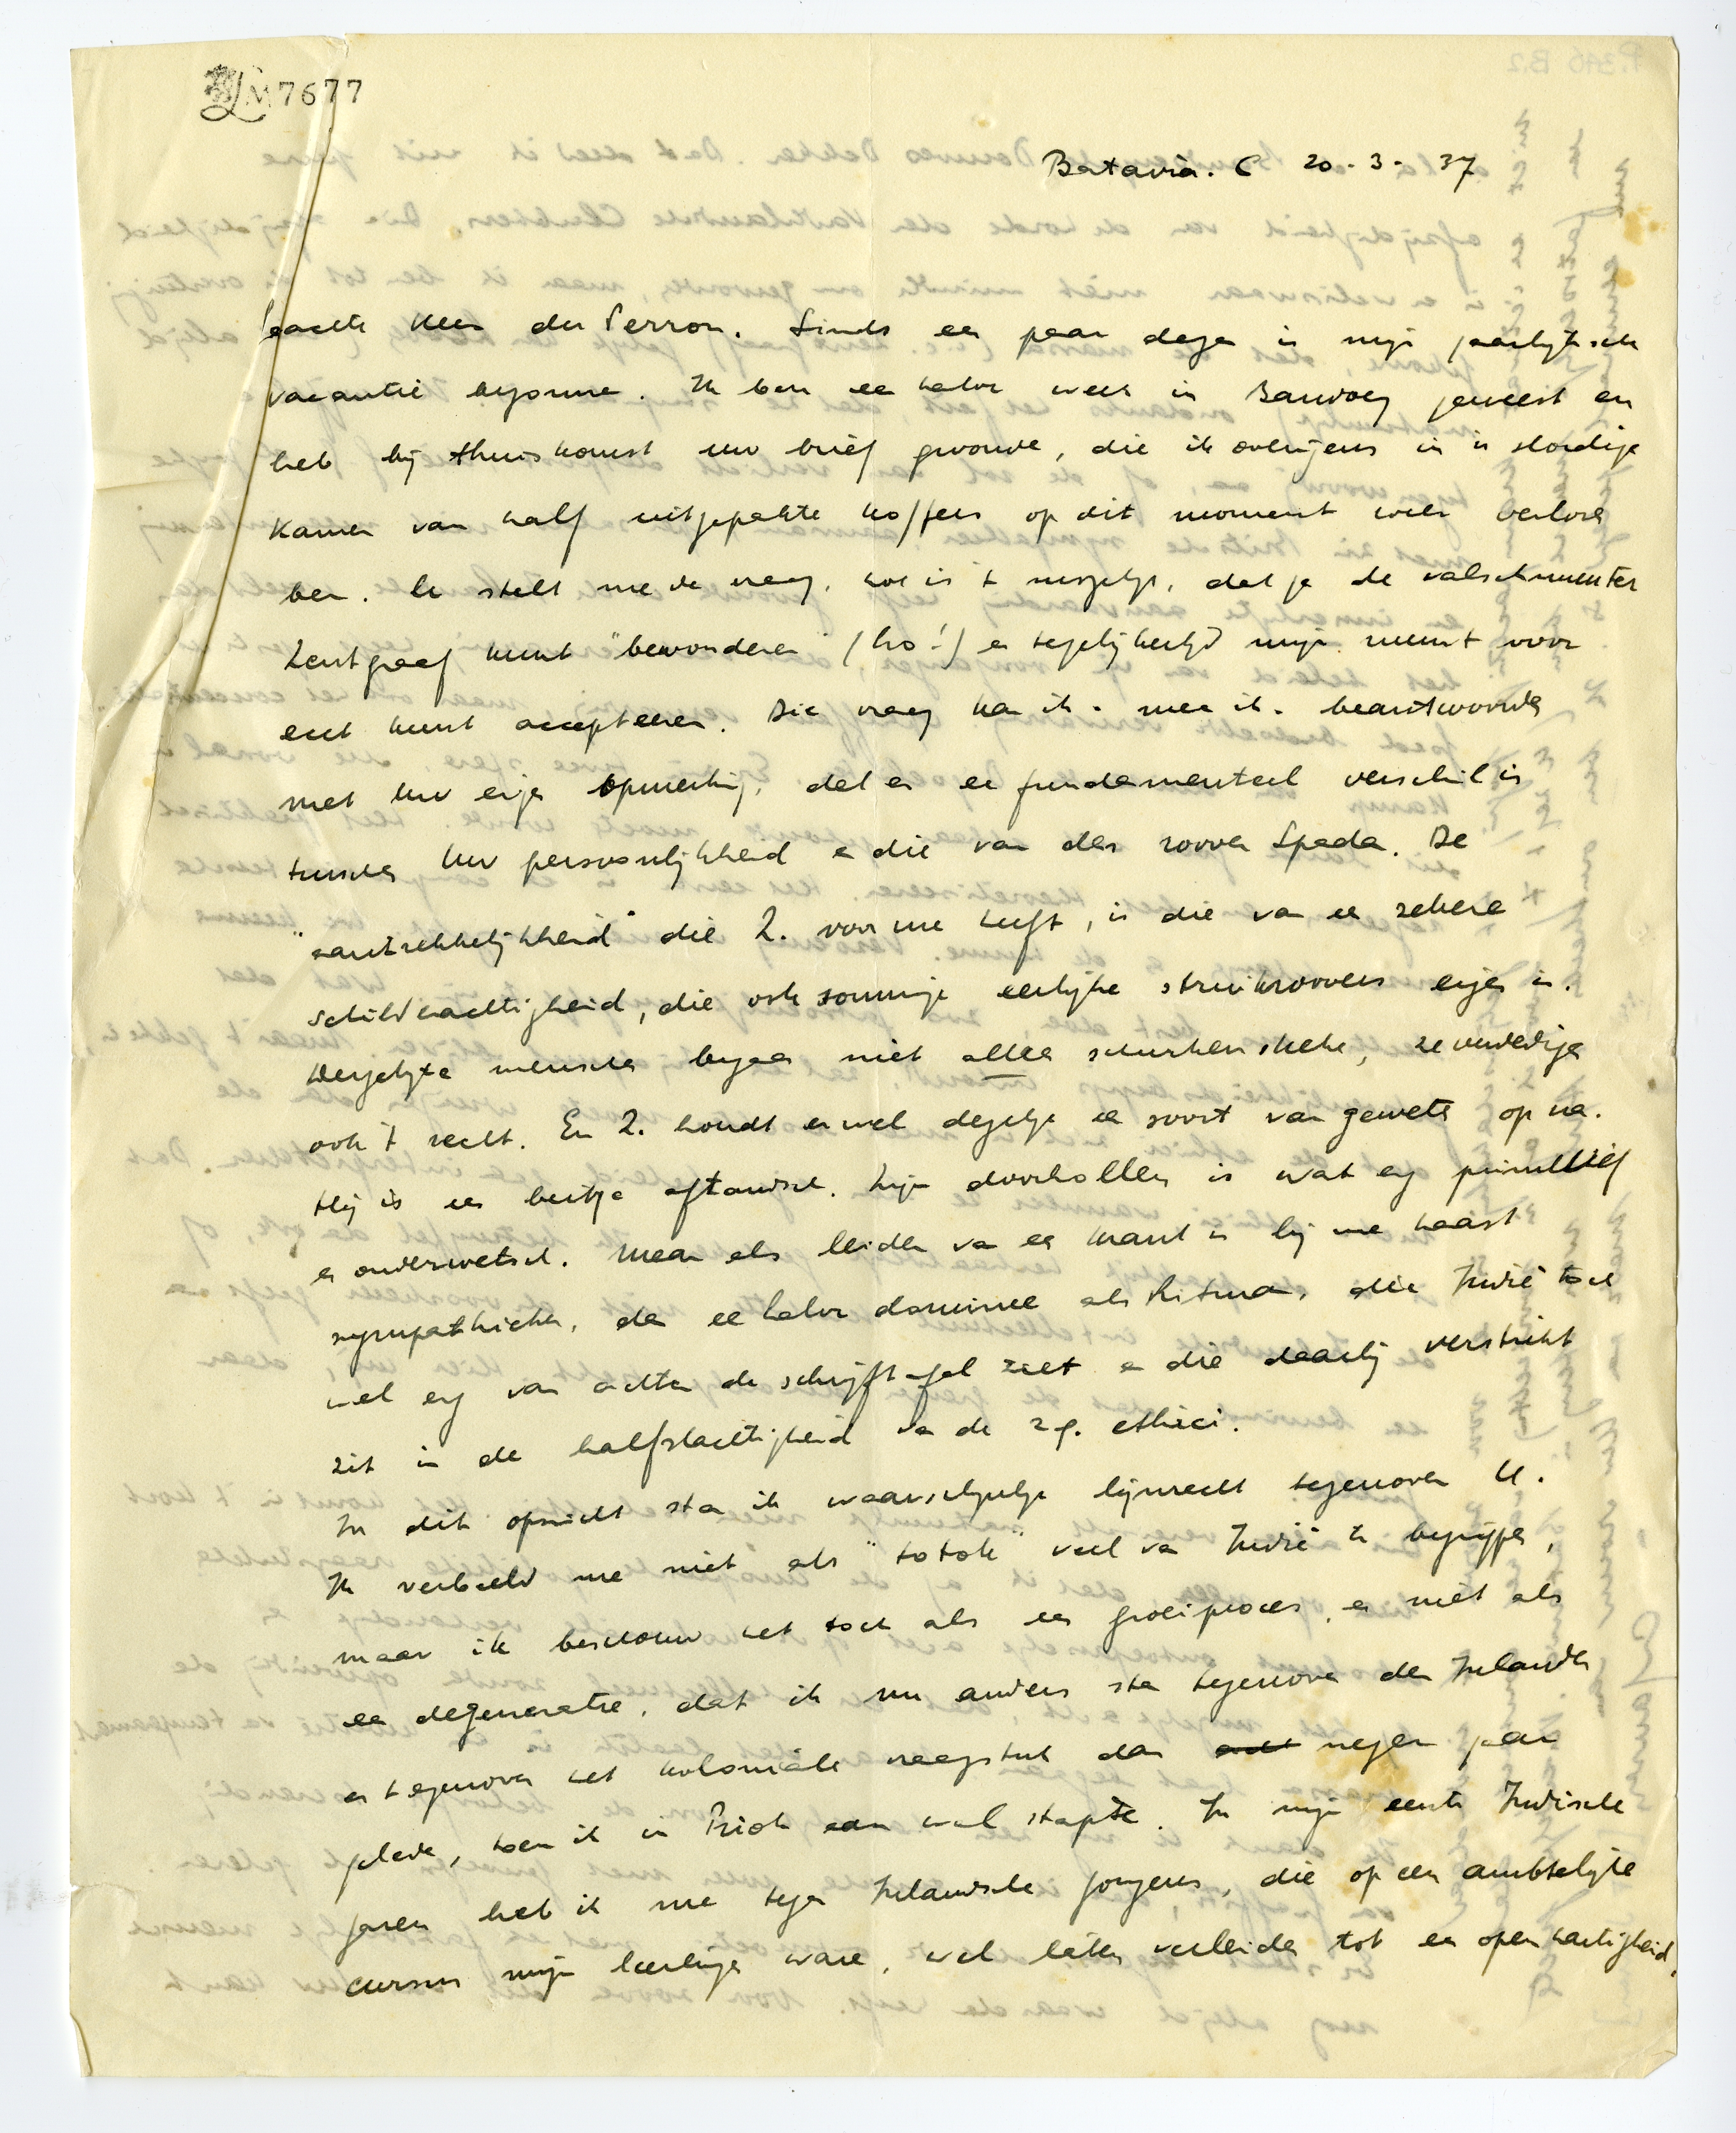 LM 7677
Batavia. C 20-3-37
Geachte Heer du Perron. Sinds een paar dagen is mijn jaarlijksche
vacantie begonnen. Ik ben een halve week in Bandoeng geweest en
heb bij thuiskomst uw brief gevonden, die ik overigens in 'n slordige
kamer van half uitgepakte koffers op dit moment weer verloren
ben. U stelt me de vraag, hoe is 't mogelijk, dat je de valschmunter
Zentgraaf kunt "bewonderen" (ho!) en tegelijkertijd mijn munt voor
echt kunt accepteeren. Die vraag kan ik - meen ik - beantwoorden
met uw eigen opmerking, dat er een fundamenteel verschil is
tusschen Uw persoonlijkheid en die van den roover Spada. De
"aantrekkelijkheid" die Z. voor me heeft, is die van een zekere
schilderachtigheid, die ook sommige eerlijke struikroovers eigen is.
Dergelijke menschen begaan niet alleen schurkenstreken, ze verdedigen
ook 't recht. En Z. houdt er wel degelijk een soort van geweten op na.
Hij is een beetje aftandsch. Zijn doorhollen is wat erg primitief
en ouderwetsch. Maar als leider van een krant is hij me haast
sympathieker, dan een halve dominee als Ritman, die Indië toch
wel erg van achter de schrijftafel ziet en die daarbij verstrikt
zit in de halfslachtigheid van de z.g. ethici.
In dit opzicht sta ik waarschijnlijk lijnrecht tegenover U.
Ik verbeeld me niet als "totok" veel van Indië te begrijpen,
maar ik beschouw het toch als een groeiproces, en niet als
een degeneratie, dat ik nu anders sta tegenover den Inlander
en tegenover het koloniale vraagstuk dan negen jaar
geleden, toen ik in Priok aan wal stapte. In mijn eerste Indische
jaren heb ik me tegen Inlandsche jongens, die op een ambtelijke
cursus mijn leerlingen waren, wel laten verleiden tot een openhartigheid,